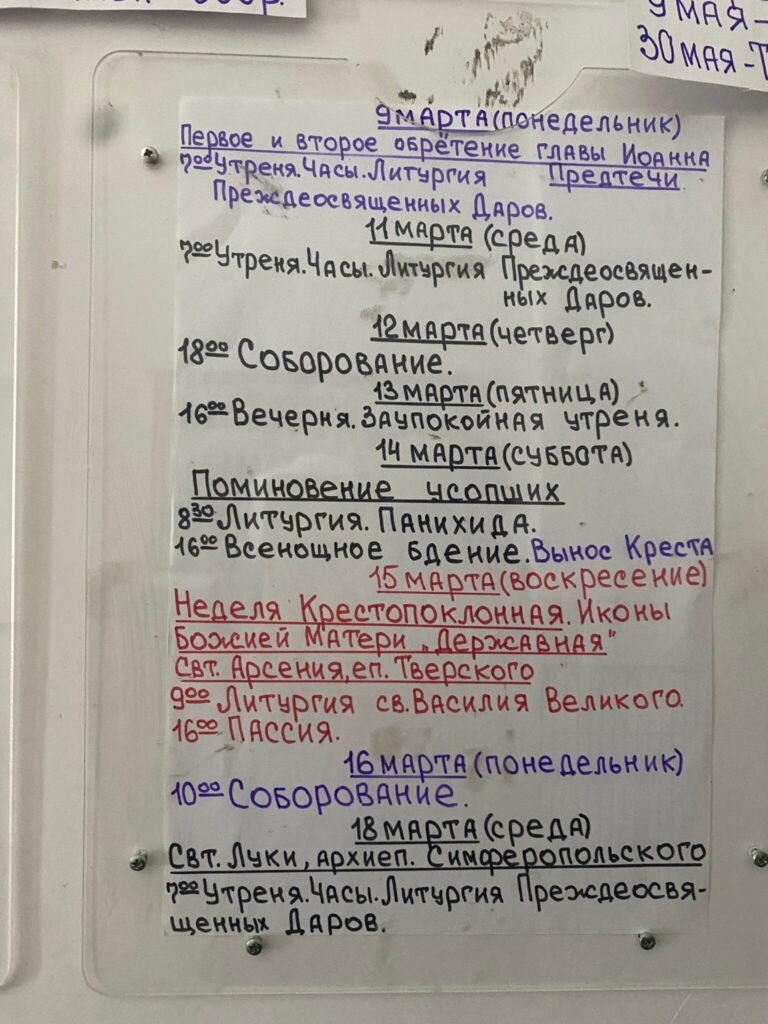 9 МАЯ-
30 МАЯ-Т
9 МАРТА (ПОНЕДЕЛЬНИК)
Первое и второе обрётение главы Иоанна
7⁰⁰ Утреня. Часы. Литургия Предтечи.
Преждеосвященных Даров.
11 МАРТА (СРЕДА)
7⁰⁰ Утреня. Часы. Литургия Преждеосвящен-
ных Даров.
12 МАРТА (ЧЕТВЕРГ)
18⁰⁰ Соборование.
13 МАРТА (ПЯТНИЦА)
16⁰⁰ Вечерня. Заупокойная утреня.
14 МАРТА (СУББОТА)
Поминовение усопших
8³⁰ Литургия. Панихида.
16⁰⁰ Всенощное бдение. Вынос Креста
15 МАРТА (ВОСКРЕСЕНИЕ)
Неделя Крестопоклонная. Иконы
Божией Матери „Державная"
Свт. Арсения, еп. Тверского
9⁰⁰ Литургия св. Василия Великого.
16⁰⁰ Пассия.
16 МАРТА (ПОНЕДЕЛЬНИК)
10⁰⁰ Соборование.
18 МАРТА (СРЕДА)
Свт. Луки, архиеп. Симферопольского
7⁰⁰ Утреня. Часы. Литургия Преждеосвя-
щенных Даров.